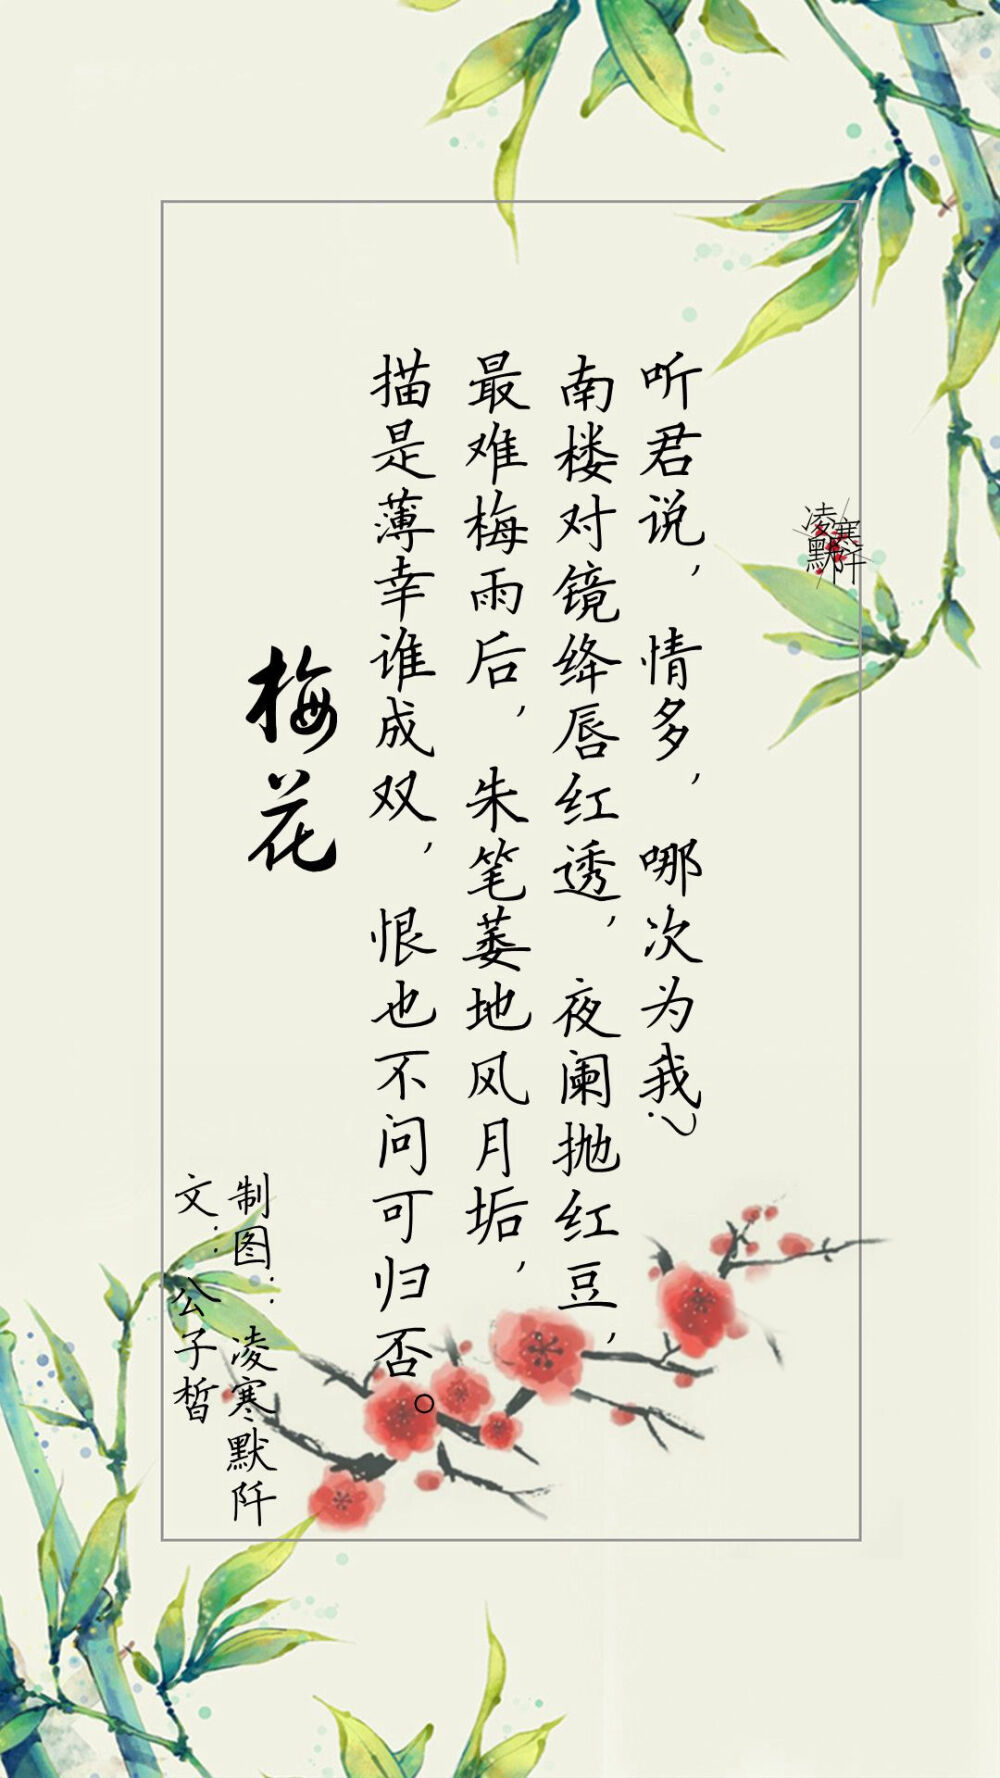 听君说，情多，哪次为我？
南楼对镜绛唇红透，夜阑抛红豆，
最难梅雨后，朱笔蒌地风月垢，
描是薄幸谁成双，恨也不问可归否。
梅花
制图：凌寒默阡
文：公子皙
凌寒
默阡